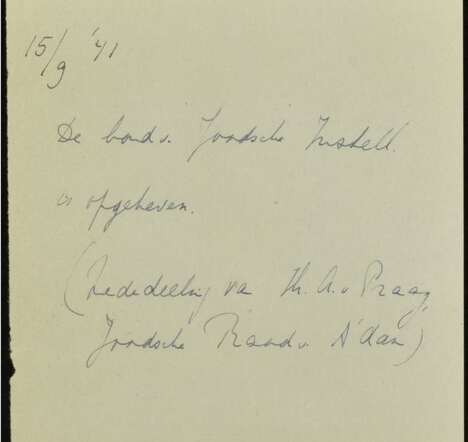 15/9 '41
De bond v. Joodsche Instell.
is opgeheven.
(Mededeeling van Hr. A. v Praag,
Joodsche Raad v. A'dam)